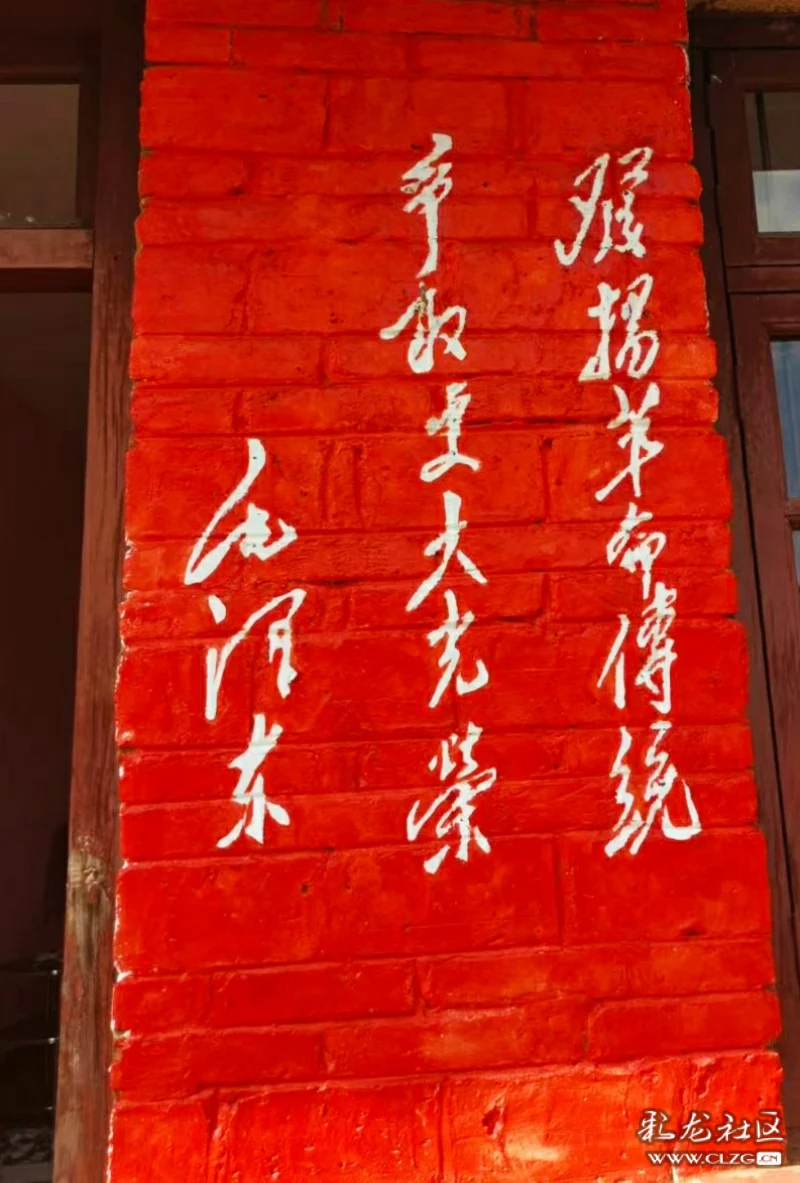 發揚革命傳統
爭取更大光榮
毛澤东
彩龙社区
WWW.CLZG.CN